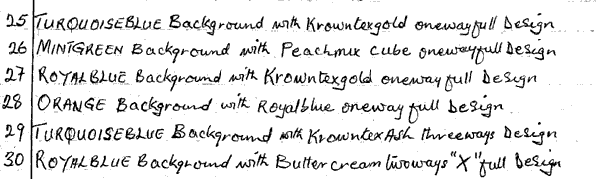 25 TURQUOISEBLUE Background with Krowntexgold onewayfull Design
26 MINTGREEN Background with Peachmix cube onewayfull Design
27 ROYALBLUE Background with Krowntexgold oneway full Design
28 ORANGE Background with Royalblue oneway full Design
29 TURQUOISEBLUE Background with KrowntexAsh threeways Design
30 ROYALBLUE Background with Buttercream twoways "X" full Design